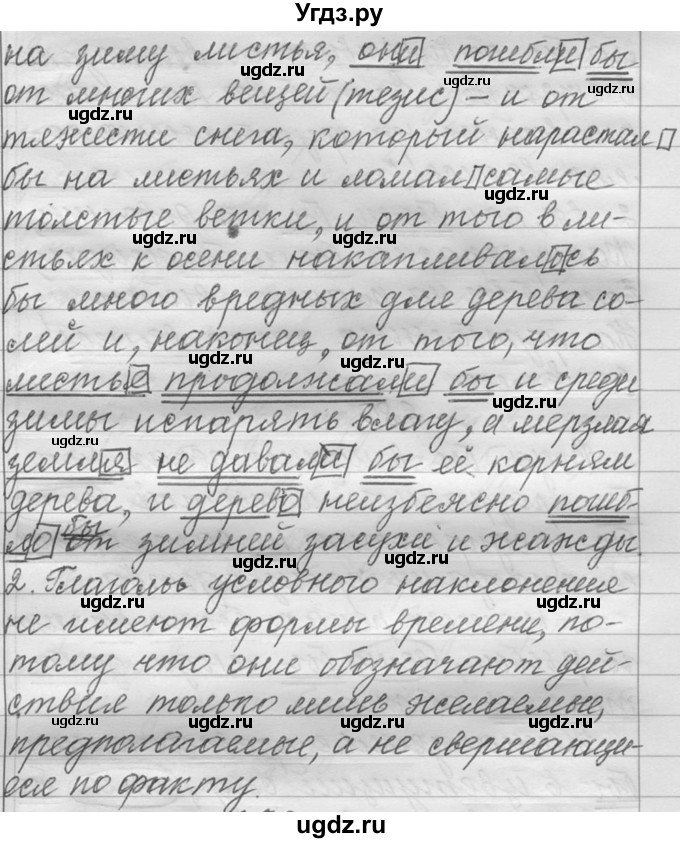 Угдз.ру
на зиму листья, они погибли бы
от многих вещей (тезис) – и от
тяжести снега, который нарастал
бы на листьях и ломал самые
толстые ветки, и от того в ли-
стьях к осени накапливалось
бы много вредных для дерева со-
лей и, наконец, от того, что
листья продолжали бы и среди
зимы испарять влагу, а мерзлая
земля не давала бы её корням
дерева, и дерево неизбежно погиб-
ло бы от зимней засухи и жажды.
2. Глаголы условного наклонения
не имеют формы времени, по-
тому что они обозначают дей-
ствия только лишь желаемые,
предполагаемые, а не свершающи-
еся по факту.
ugdz.ru